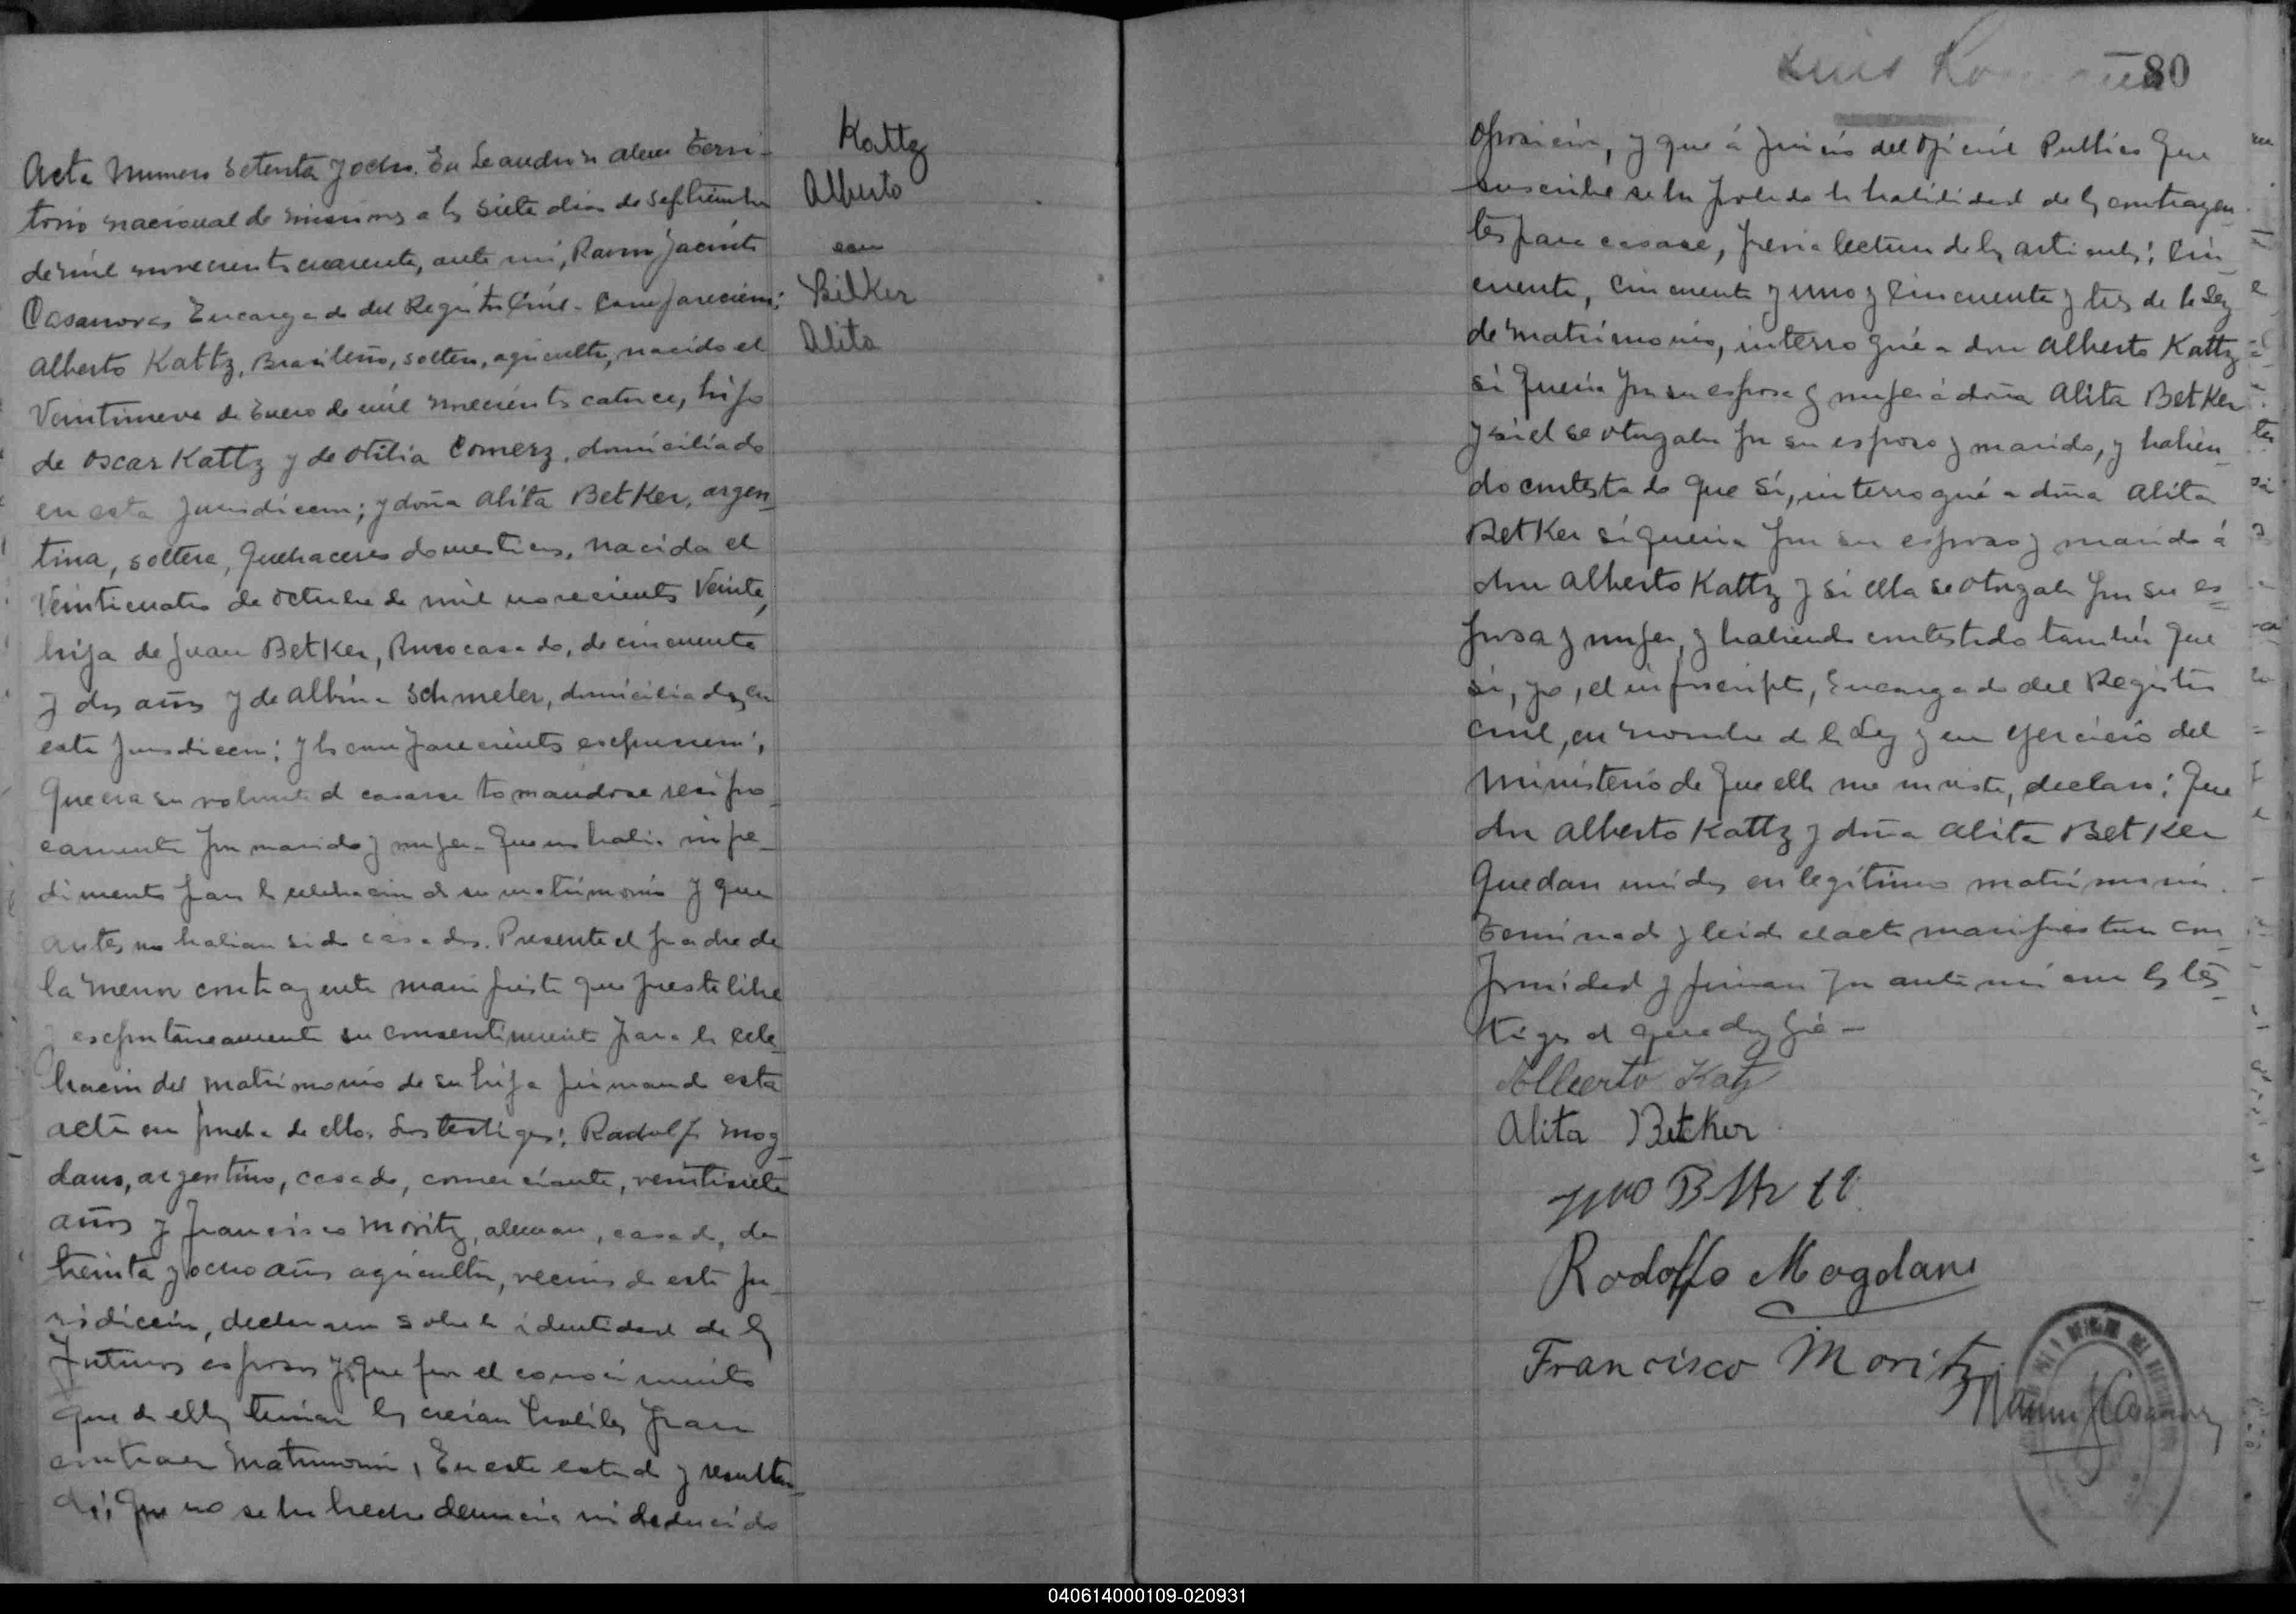 Acta Numero Setenta y ocho. En Leandro n alem Terri-
torio nacional de misiones a los siete dias de Septiembre
de mil novecientos cuarenta, ante mi, Ramon Jacinto
Casanovas Encargado del Registro Civil - Comparecieron:
Alberto Kattz, Brasileño, soltero, agricultor, nacido el
Veintinueve de Enero de mil novecientos catorce, hijo
de Oscar Kattz y de Otilia Comerz, domiciliado
en esta jurisdiccion; y doña Alita BetKer, argen-
tina, soltera, quehaceres domesticos, nacida el
Veinticuatro de octubre de mil novecientos Veinte,
hija de Juan BetKer, Ruso casado, de cincuenta
y dos años y de Albina Schmeler, domiciliados en
esta jurisdiccion; y los comparecientes expusieron;
Que era su voluntad casarse tomandose recipro-
camente por marido y mujer - Que no habia inpe-
dimento para la celebracion de su matrimonio y que
antes no habian sido casados. Presente el padre de
la menor contrayente manifiesta que presta libre
y espontaneamente su consentimiento para la cele-
bracion del matrimonio de su hija firmando esta
acta en prueba de ello. Los testigos: Radolfo Mog-
dans, argentino, casado, comerciante, veintisiete
años y Francisco Moritz, aleman, casado, de
treinta y ocho años agricultor, vecinos de esta ju-
ridiccion, declararon sobre la identidad de los
Futuros esposos y que por el conocimiento
que de ellos tenian los creian habiles para
contraer Matrimonio, En este estado y resultan-
do; Que no se ha hecho denuncia ni deducido
Kattz
Alberto
con
BilKer
Alita
Luis
80
oposicion, y que á juicio del Oficial Publico que
suscribe se ha probado la habilidad de los contrayen-
tes para casarse, previa lectura de los articulos; Cin-
cuenta, cincuenta y uno y Cincuenta y tres de la Ley
de Matrimonio, interrogué a don Alberto Kattz
si Queria por su esposa y mujer á doña Alita BetKer
y si el se otorgaba por su esposo y marido, y habien-
do contestado Que Sí, interrogué a doña Alita
BetKer si queria por su esposo y marido á
don Alberto Kattz y si ella se otorgaba por su es-
posa y mujer, y habiendo contestado tambien que
si, yo, el infrascripto, Encargado del Registro
Civil, en nombre de la Ley y en ejercicio del
Ministerio de que ella me inviste, declaro; Que
don Alberto Kattz y doña Alita BetKer
Quedan unidos en legítimo matrimonio.
Terminada y leida el acta manifiestan con-
formidad y firman por ante mi con los tes-
tigos de que doy fé -
Alberto Katz
Alita Betker
Rodolfo Mogdans
Francisco Moritz
040614000109-020931